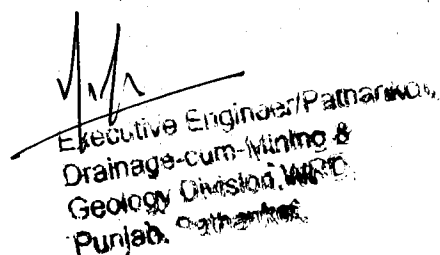 Executive Engineer/Pathankot,
Drainage-cum-Mining &
Geology Division, WRD,
Punjab, Pathankot